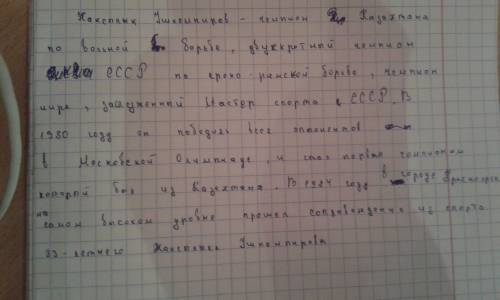 Жакслык Ушкемпиров - чемпион Казахстана
по вольной борьбе, двухкратный чемпион
СССР по греко-римской борьбе, чемпион
мира, заслуженный Мастер спорта СССР. В
1980 году он победил всех опонентов
в Московской Олимпиаде, и стал первым чемпионом
который был из Казахстана. В 1984 году в городе Красноярск
на самом высоком уровне прошел сопровождению из спорта
33-летнего Жакслыка Ушкемпирова